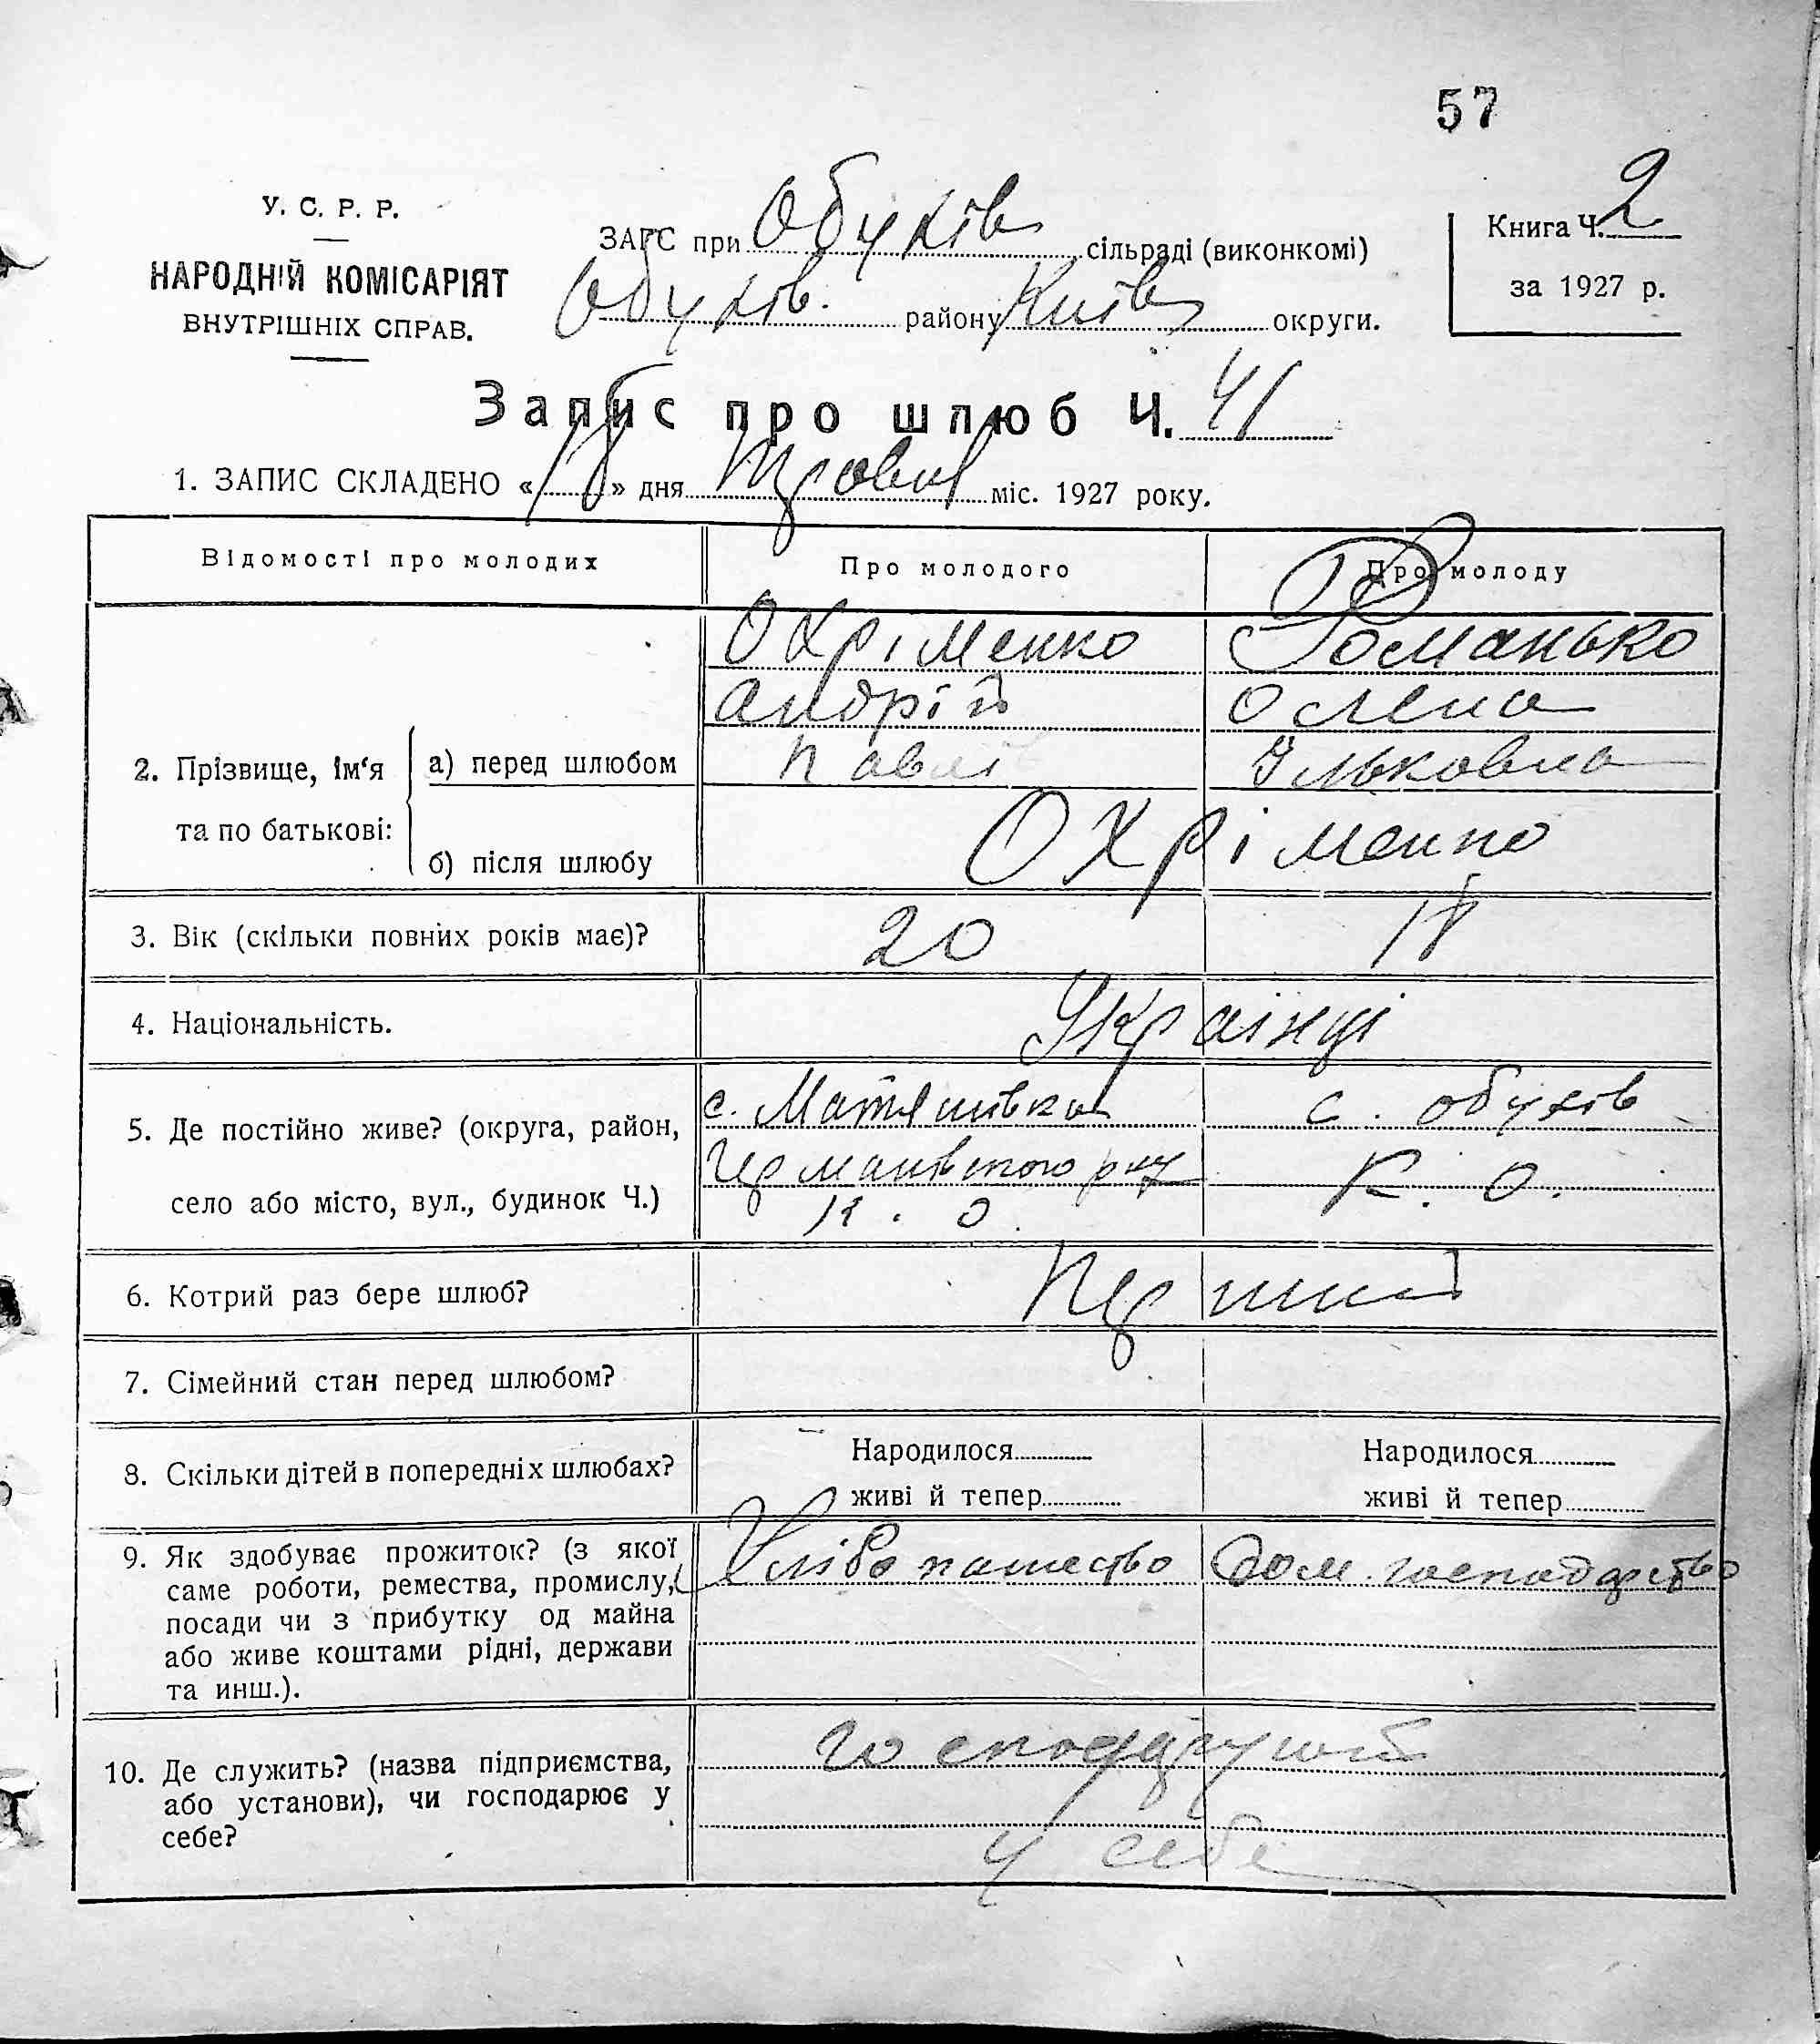 57
У. С. Р. Р.
НАРОДНІЙ КОМІСАРІЯТ
ВНУТРІШНІХ СПРАВ.
ЗАГС при Обухів сільраді (виконкомі)
Обухів. району Київ округи.
Книга Ч. 2
за 1927 р.
Запис про шлюб Ч. 41
1. ЗАПИС СКЛАДЕНО «18» дня Травня міс. 1927 року.
Відомості про молодих Про молодого Про молоду
Охріменко Романько
Андрій Олена
2. Прізвище, ім'я та по батькові: а) перед шлюбом Павл Ільковна
б) після шлюбу Охріменко
3. Вік (скільки повних років має)? 20 18
4. Національність. Українці
5. Де постійно живе? (округа, район, с. Матяшівка с. Обухів
село або місто, вул., будинок Ч.) Германівського р-ну К. О.
К. О.
6. Котрий раз бере шлюб? Перший
7. Сімейний стан перед шлюбом?
8. Скільки дітей в попередніх шлюбах? Народилося Народилося
живі й тепер живі й тепер
9. Як здобуває прожиток? (з якої Хлібопашество Дом. господарство
саме роботи, ремества, промислу,
посади чи з прибутку од майна
або живе коштами рідні, держави
та инш.).
10. Де служить? (назва підприємства, господарюють
або установи), чи господарює у
себе? у себе